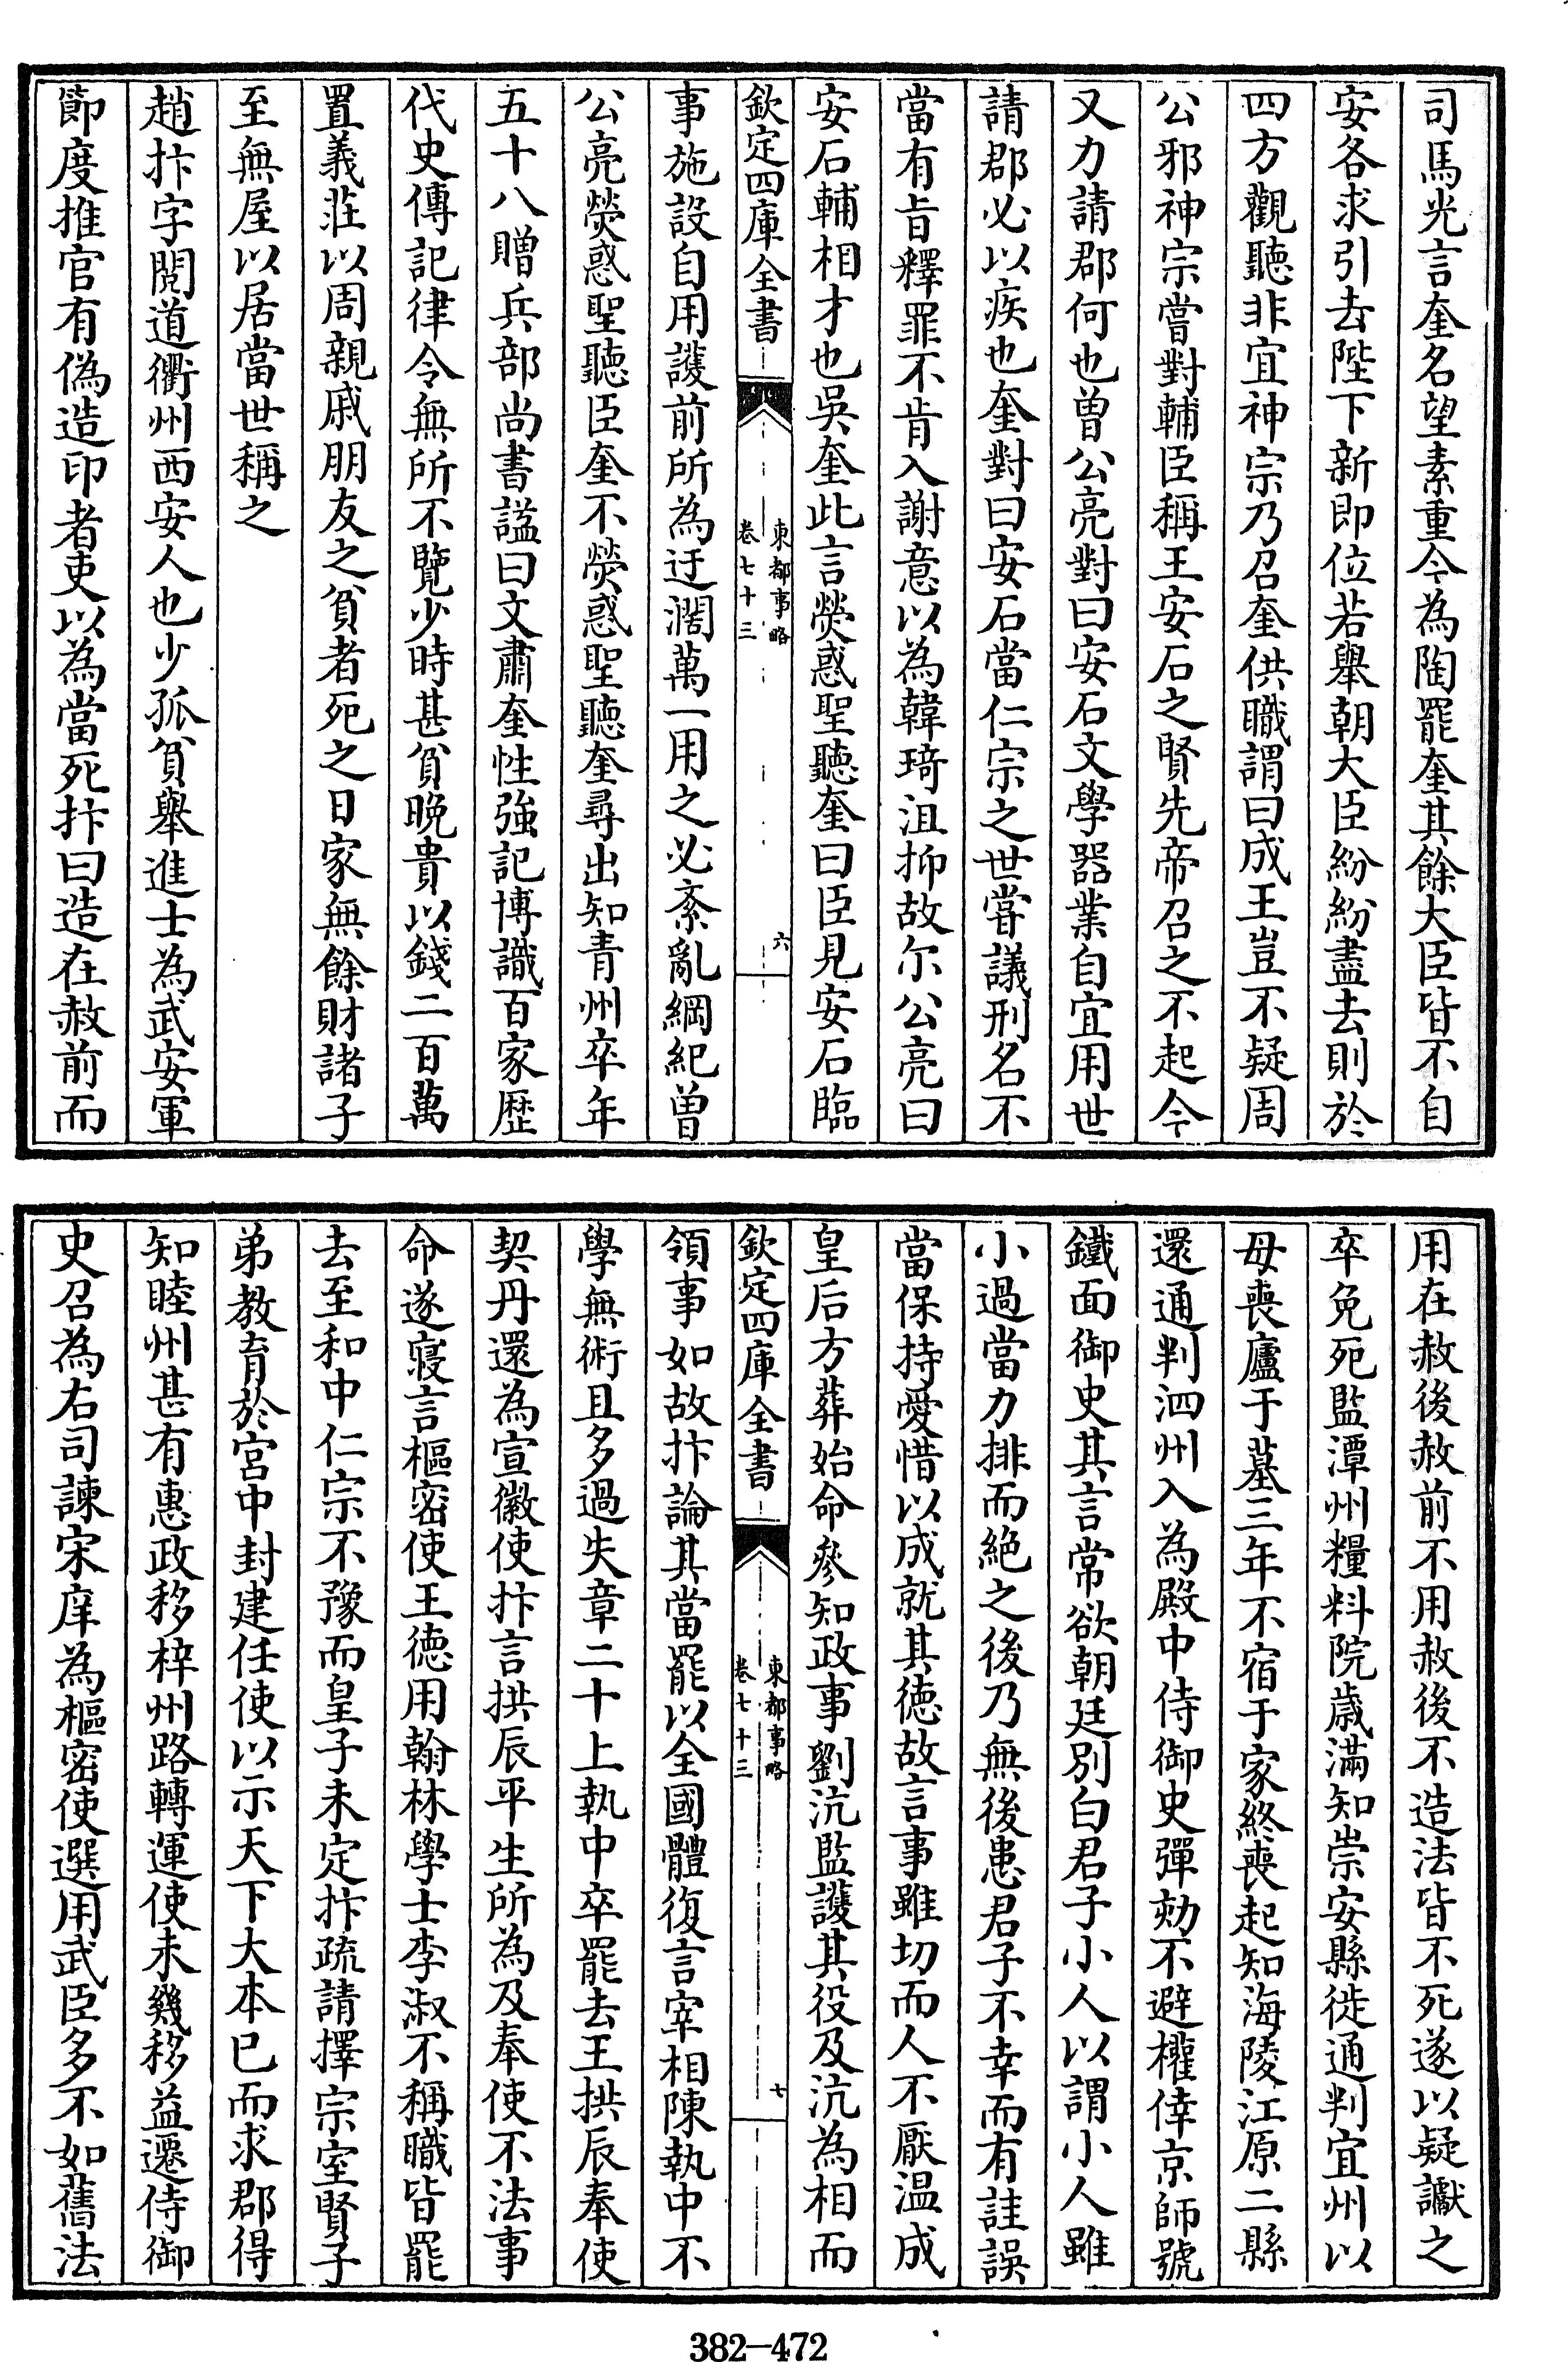 司馬光言奎名望素重今為陶罷奎其餘大臣皆不自
安各求引去陛下新即位若舉朝大臣紛紛盡去則於
四方觀聽非宜神宗乃召奎供職謂曰成王豈不疑周
公邪神宗嘗對輔臣稱王安石之賢先帝召之不起今
又力請郡何也曽公亮對曰安石文學器業自宜用世
請郡必以疾也奎對曰安石當仁宗之世嘗議刑名不
當有旨釋罪不肯入謝意以為韓琦沮抑故尔公亮曰
安石輔相才也吳奎此言熒惑聖聽奎曰臣見安石臨
欽定四庫全書
東都事略
卷七十三
六
事施設自用護前所為迂濶萬一用之必紊亂綱紀曽
公亮熒惑聖聽臣奎不熒惑聖聽奎尋出知青州卒年
五十八贈兵部尚書諡曰文肅奎性強記博識百家歴
代史傳記律令無所不覽少時甚貧晚貴以錢二百萬
置義莊以周親戚朋友之貧者死之日家無餘財諸子
至無屋以居當世稱之
趙抃字閱道衢州西安人也少孤貧舉進士為武安軍
節度推官有偽造印者吏以為當死抃曰造在赦前而
用在赦後赦前不用赦後不造法皆不死遂以疑讞之
卒免死監潭州糧料院歳滿知崇安縣徙通判宜州以
母喪廬于墓三年不宿于家終喪起知海陵江原二縣
還通判泗州入為殿中侍御史彈劾不避權倖京師號
鐵面御史其言常欲朝廷別白君子小人以謂小人雖
小過當力排而絶之後乃無後患君子不幸而有詿誤
當保持愛惜以成就其徳故言事雖切而人不厭温成
皇后方葬始命參知政事劉沆監護其役及沆為相而
欽定四庫全書
東都事略
卷七十三
七
領事如故抃論其當罷以全國體復言宰相陳執中不
學無術且多過失章二十上執中卒罷去王拱辰奉使
契丹還為宣徽使抃言拱辰平生所為及奉使不法事
命遂寢言樞密使王徳用翰林學士李淑不稱職皆罷
去至和中仁宗不豫而皇子未定抃疏請擇宗室賢子
弟教育於宮中封建任使以示天下大本已而求郡得
知睦州甚有惠政移梓州路轉運使未幾移益遷侍御
史召為右司諫宋庠為樞密使選用武臣多不如舊法
382—472